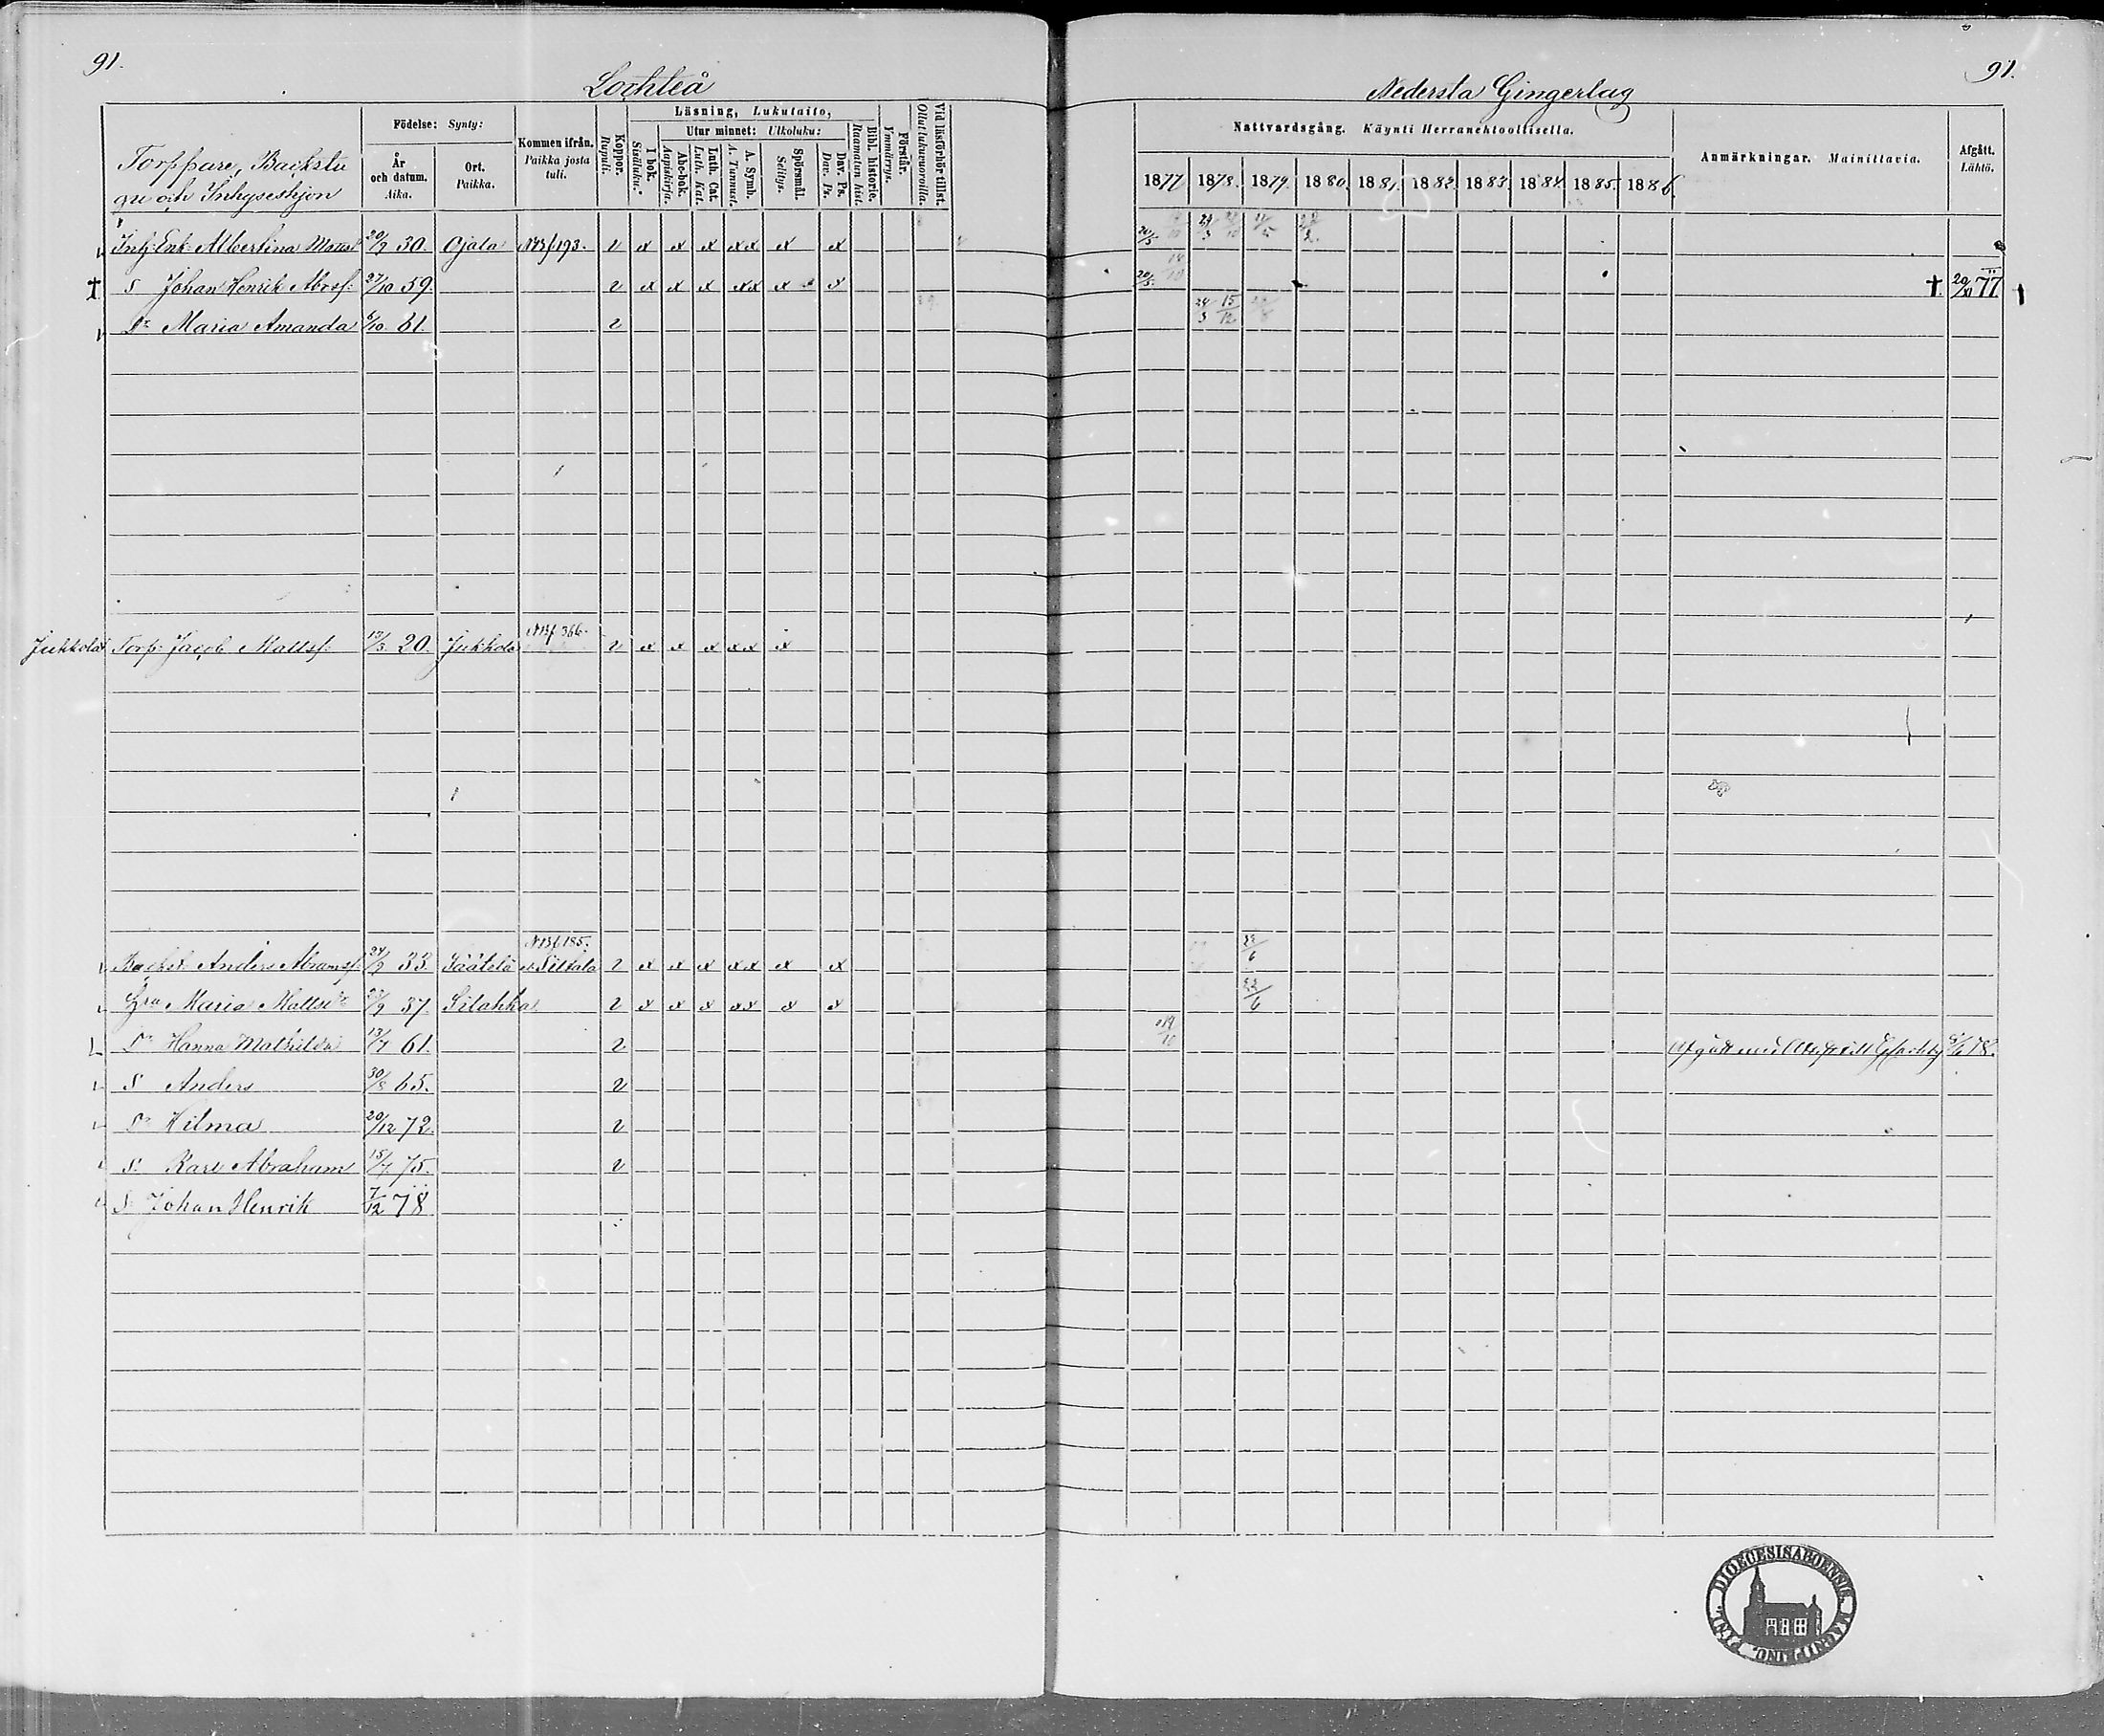 91.
91.
Lochteå
Nedersta Gingerlag
Torppare, Backstu
gu och Inhyseshjon
Födelse: Synty:
År och datum. Aika.
Ort. Paikka.
Kommen ifrån. Paikka josta tuli.
Koppor. Rupuli.
Läsning, Lukutaito,
I bok. Sisäluku.
Utur minnet: Ulkoluku:
Abc-bok. Aapiskirja.
Luth. Cat. Luth. Kat.
A. Symb. A. Tunnust.
Spörsmål. Selitys.
Dav. Ps. Dav. Ps.
Bibl. historie. Raamatun hist.
Förstår. Ymmärrys.
Vid läsförhör tillst. Ollut lukuvuoroilla.
Nattvardsgång. Käynti Herranehtoollisella.
1877 1878. 1879. 1880. 1881. 1882. 1883. 1884. 1885. 1886.
Anmärkningar. Mainittavia.
Afgått. Lähtö.
Inh: Enk: Albertina Matts 20/9 30. Ojala N13f193. v x x x xx x x 20/5
† S Johan Henrik Abrsf: 27/10 59. v x x x xx x x 20/5 † 20/XI 77
Dr Maria Amanda 6/10 61. v 24/3 15/12
Jukkola Torp: Jacob Mattsf: 13/3 20. Jukkola N13f 366. v x x x xx x
Backst Anders Abramsf: 24/9 33. Säätelä N13f185. Siltala v x x x xx x x 22/6
Hru Maria Mattsdr 23/9 37. Silahka v x x x xx x x 22/6
Dr Hanna Mathilda 13/7 61. v 14/10 78.
S Anders 30/8 65. v
Dr Hilma 20/12 72. v
S. Karl Abraham 15/7 75. v
S Johan Henrik 7/12 78
DIOECESIS ABOENSIS